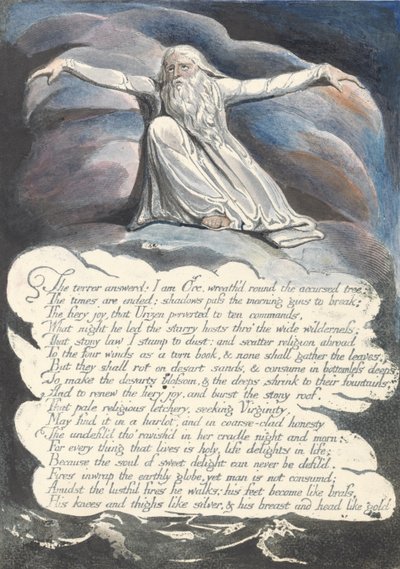 The terror answerd: I am Orc, wreath'd round the accursed tree:
The times are ended; shadows pass the morning gins to break;
The fiery joy, that Urizen perverted to ten commands,
What night he led the starry hosts thro' the wide wilderness;
That stony law I stamp to dust: and scatter religion abroad
To the four winds as a torn book, & none shall gather the leaves;
But they shall rot on desart sands, & consume in bottomless deeps;
To make the desarts blossom, & the deeps shrink to their fountains,
And to renew the fiery joy, and burst the stony roof.
That pale religious letchery, seeking Virginity,
May find it in a harlot, and in coarse-clad honesty
The undefil'd tho' ravish'd in her cradle night and morn:
For every thing that lives is holy, life delights in life;
Because the soul of sweet delight can never be defil'd.
Fires inwrap the earthly globe, yet man is not consumd;
Amidst the lustful fires he walks: his feet become like brass,
His knees and thighs like silver, & his breast and head like gold